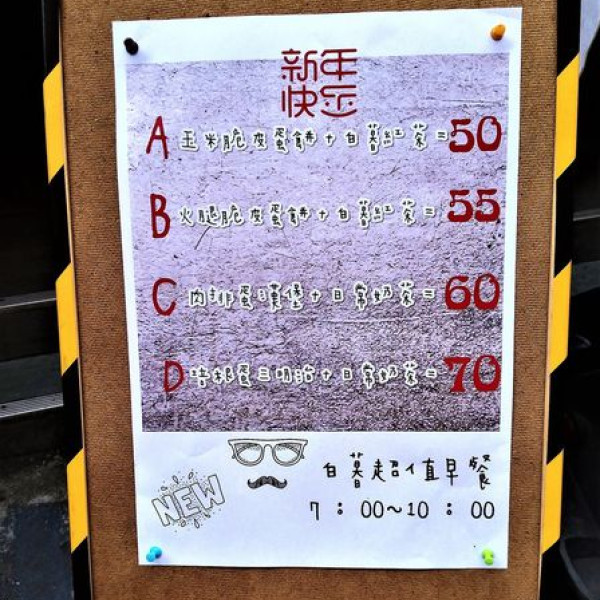 新年
快樂
A 玉米脆皮蛋餅+白暮紅茶=50
B 火腿脆皮蛋餅+白暮紅茶=55
C 肉排蛋漢堡+日常奶茶=60
D 培根蛋三明治+日常奶茶=70
NEW
白暮超值早餐
7：00~10：00